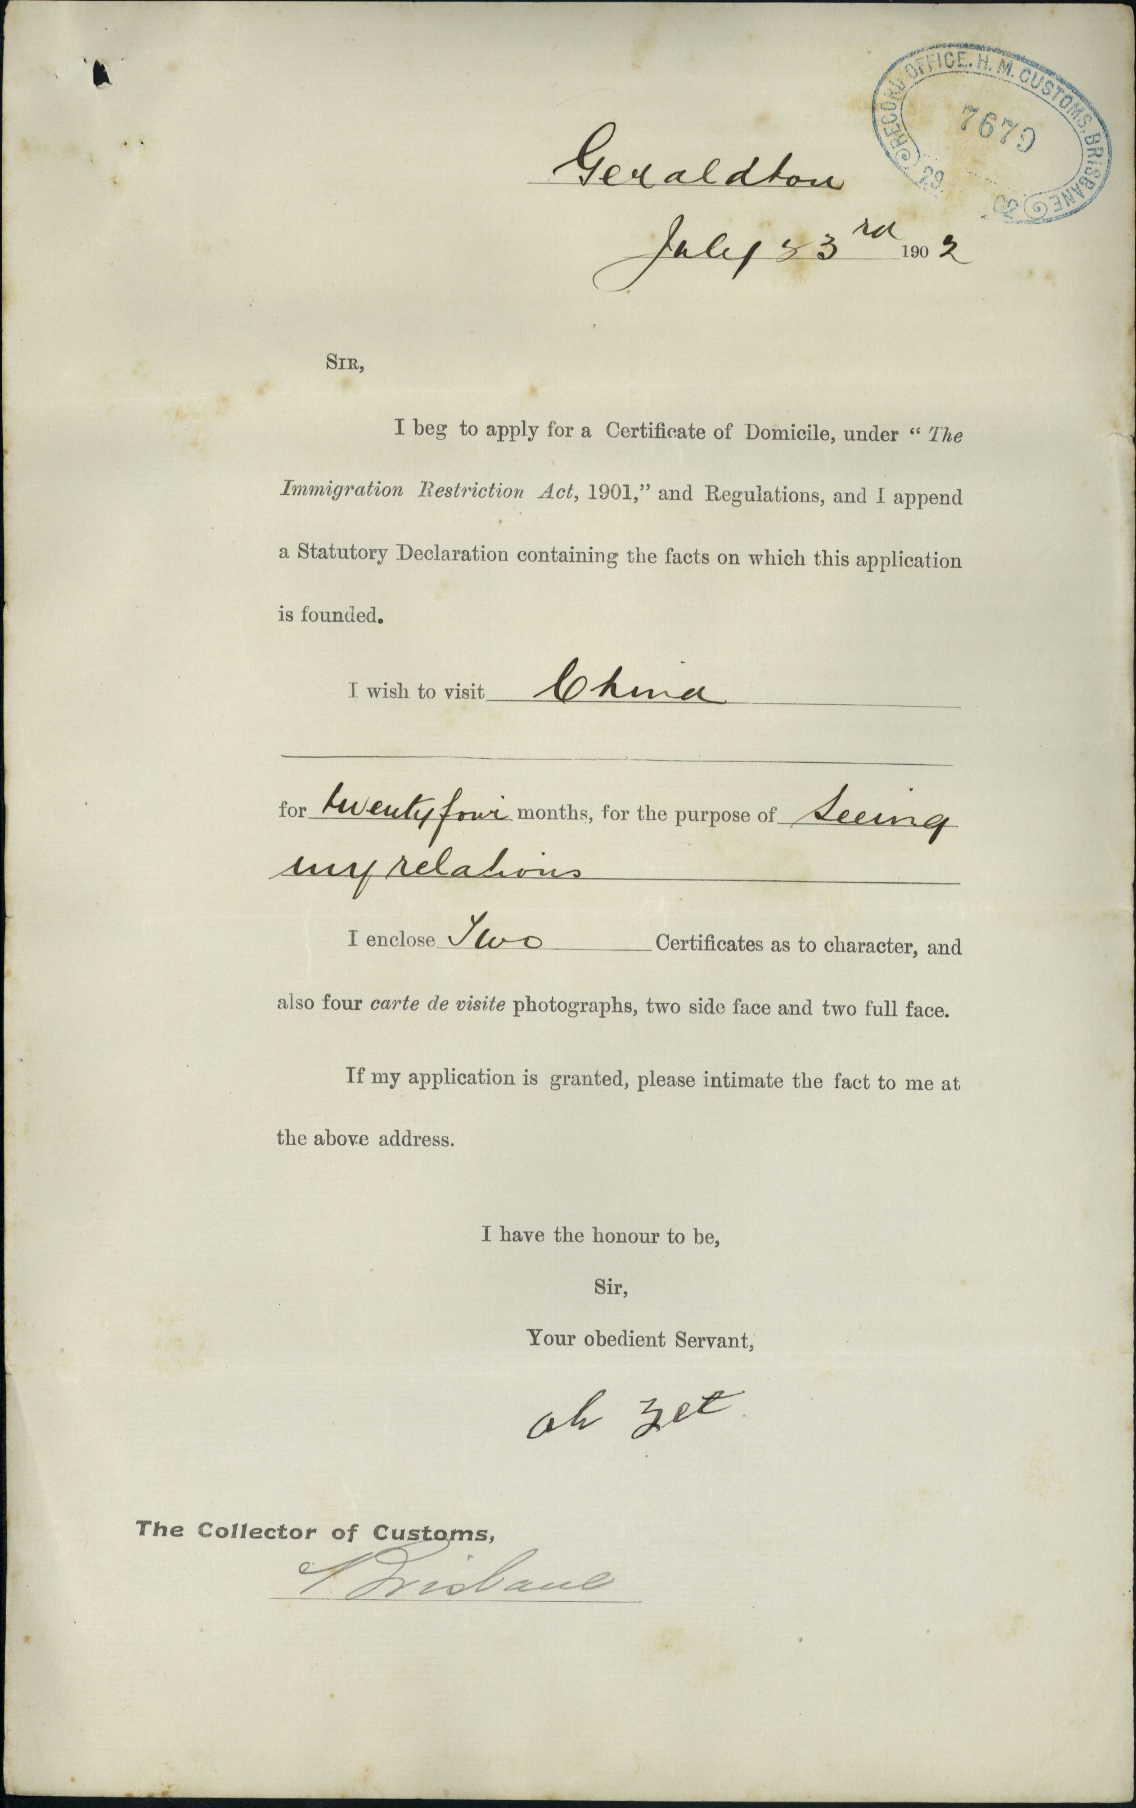 RECORD OFFICE. H. M. CUSTOMS, BRISBANE
7679
Geraldton
July 23rd 1902
SIR,
I beg to apply for a Certificate of Domicile, under "The
Immigration Restriction Act, 1901," and Regulations, and I append
a Statutory Declaration containing the facts on which this application
is founded.
I wish to visit China
for twenty four months, for the purpose of seeing
my relations
I enclose Two Certificates as to character, and
also four carte de visite photographs, two side face and two full face.
If my application is granted, please intimate the fact to me at
the above address.
I have the honour to be,
Sir,
Your obedient Servant,
ah yet
The Collector of Customs,
Brisbane